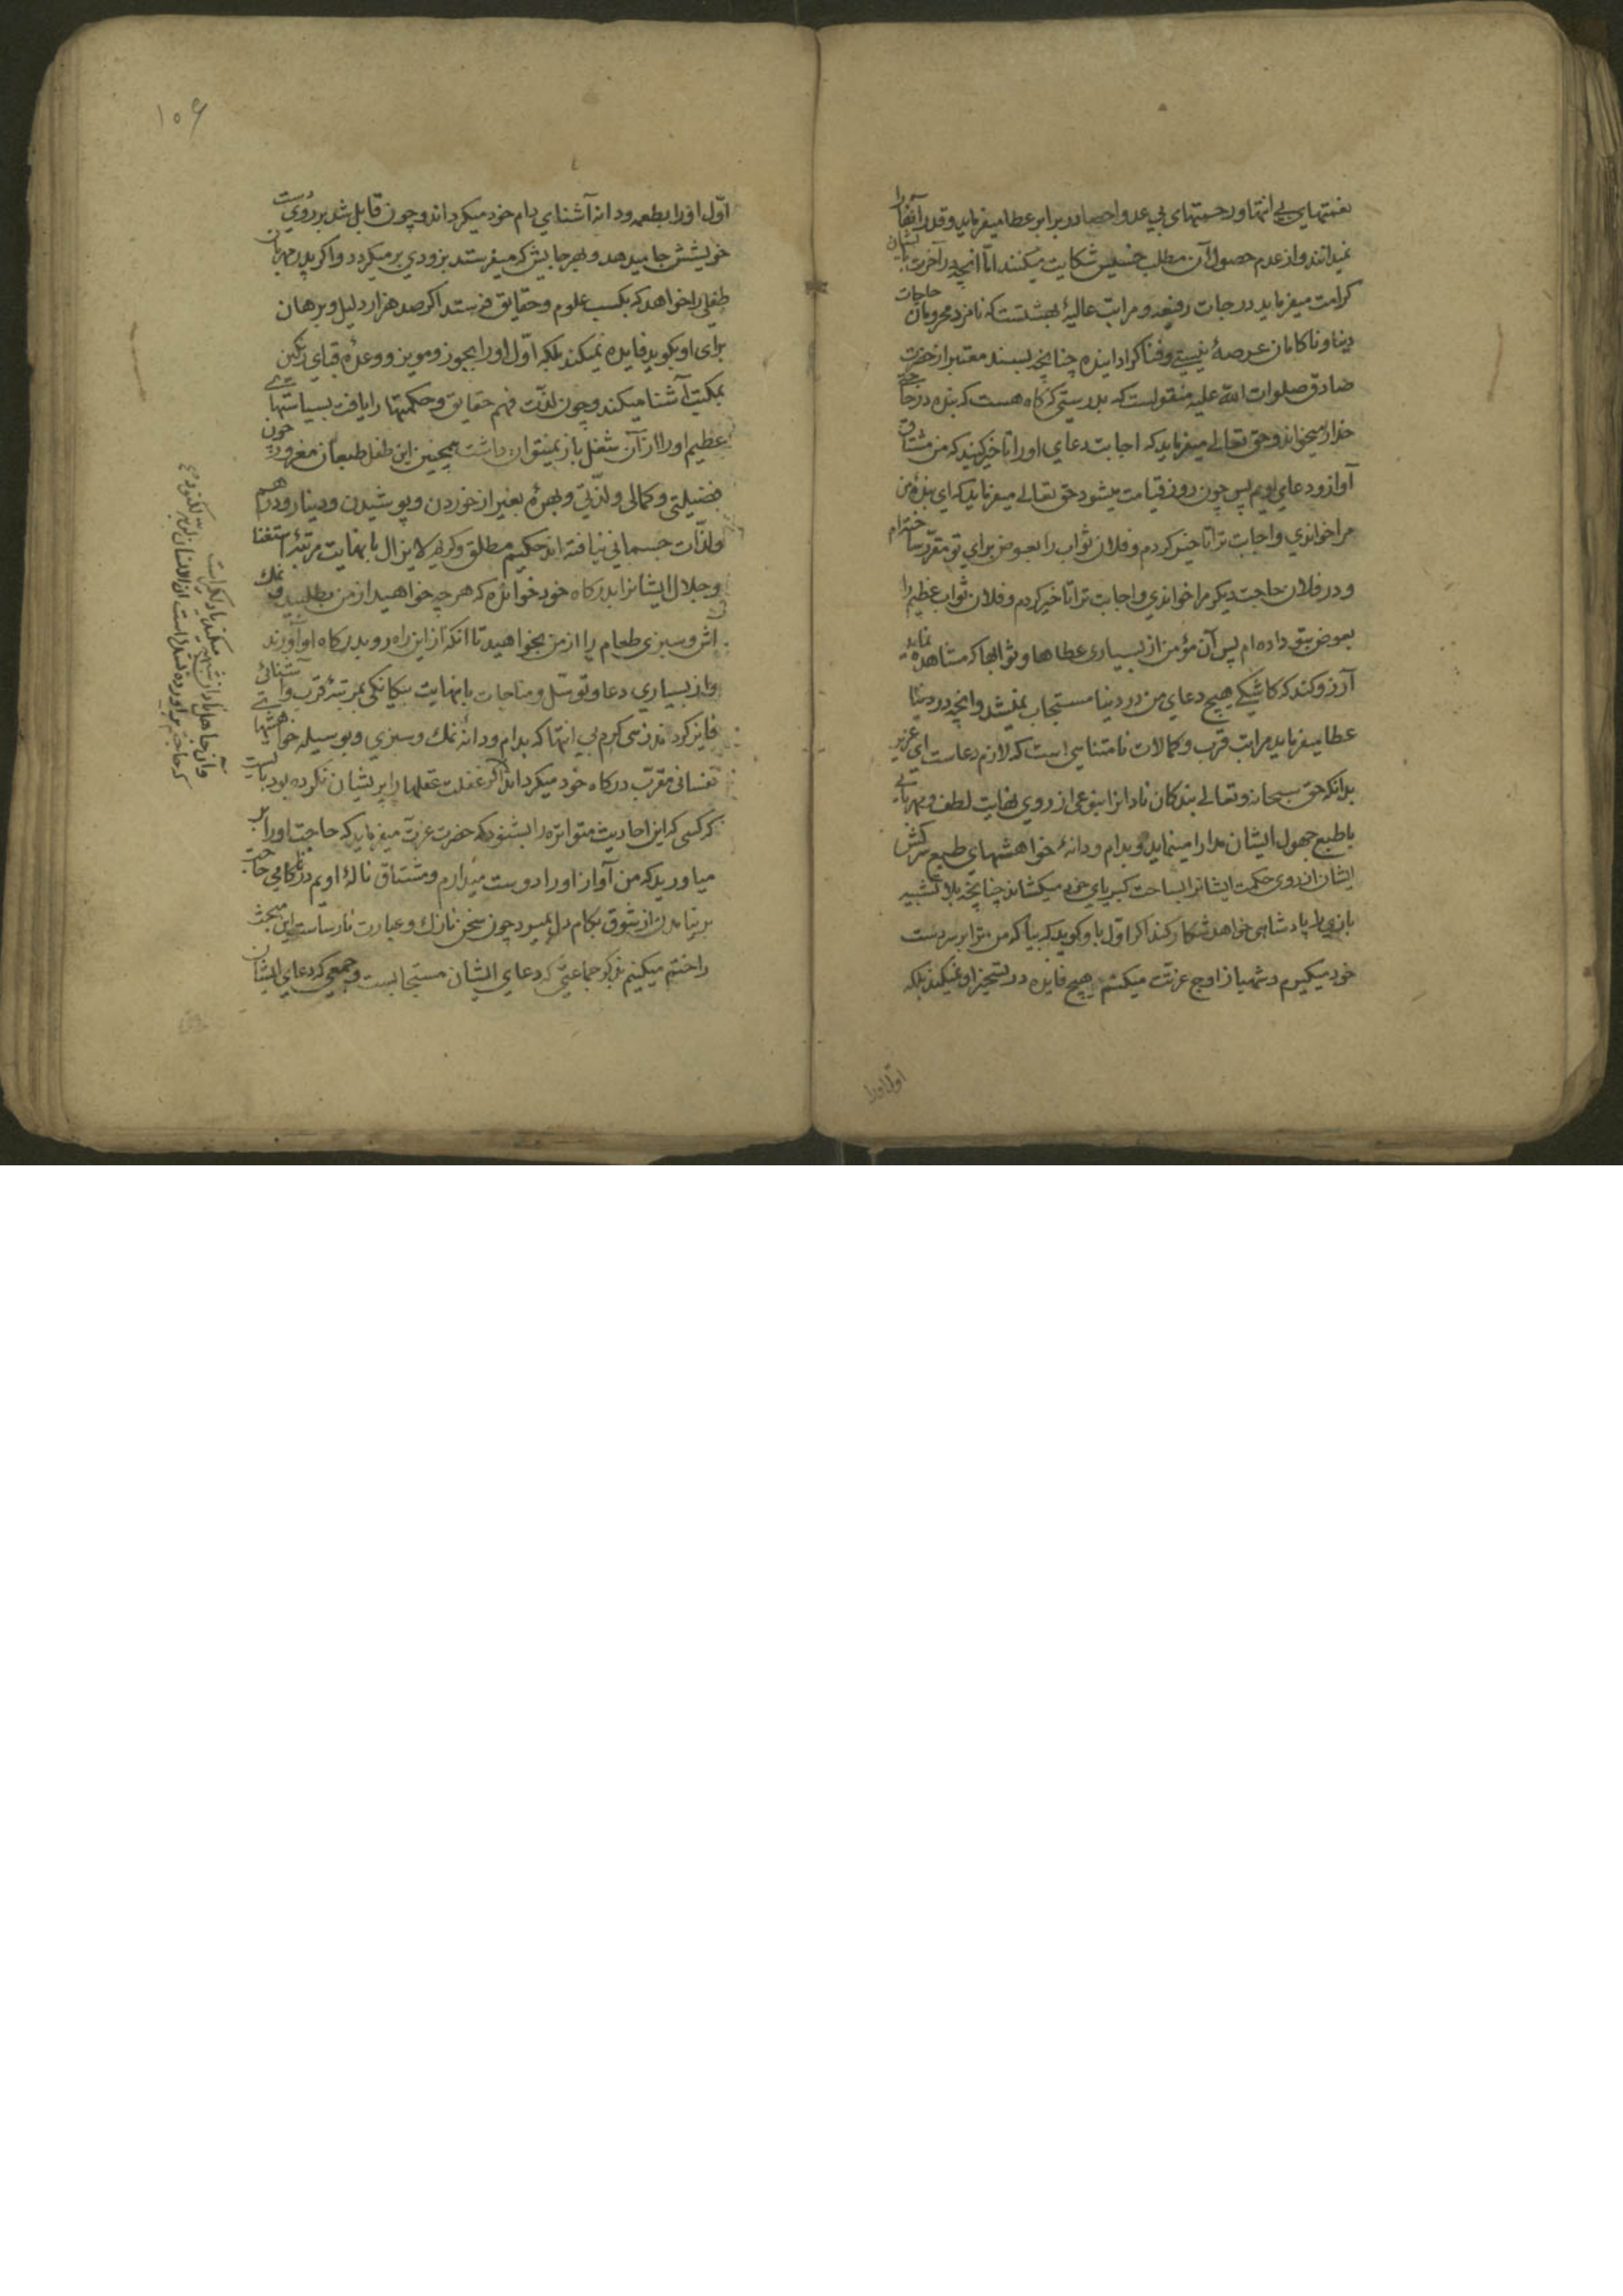 نعمتهای بی انتها و رحمتهای بی عد و احصا در برابر عطا میفرماید و قدر آنها را
نمیدانند و از عدم حصول آن مطلب خسیس شکایت میکنند اما آنچه در آخرت بایشان
کرامت میفرماید درجات رفیعه و مراتب عالیهٔ بهشتست که نامزد محرومان حاجات
دنیا و ناکامان عرصهٔ نیستی و فنا گردانیده چنانچه بسند معتبر از حضرت
صادق صلوات الله علیه منقولست که بدرستی که گاه هست که بنده در حاجتی
خدا را میخواند و حق تعالی میفرماید که اجابت دعای او را تاخیر کنید که من مشتاق
آواز و دعای اویم پس چون روز قیامت میشود حق تعالی میفرماید که ای بندهٔ من
مرا خواندی و اجابت ترا تاخیر کردم و فلان ثواب را بعوض برای تو مقرر ساختم
و در فلان حاجت دیگر مرا خواندی و اجابت ترا تاخیر کردم و فلان ثواب عظیم را
بعوض بتو داده ام پس آن مؤمن از بسیاری عطاها و ثوابها که مشاهده نماید
آرزو کند که کاشکی هیچ دعای من در دنیا مستجاب نمیشد و آنچه در دنیا
عطا میفرماید مراتب قرب و کمالات نامتناهی است که لازم دعاست ای عزیز
بدانکه حق سبحانه و تعالی بندگان نادانرا بنوعی از روی نهایت لطف و مهربانی
با طبع جهول ایشان مدارا مینماید و بدام و دانهٔ خواهشهای طبع سرکش
ایشان از روی حکمت ایشانرا بساحت کبریای خود میکشاند چنانچه بلا تشبیه
بازی را پادشاهی خواهد شکار کند اگر اول باو گوید که بیا که من ترا بر سر دست
خود میگیرم و شهباز اوج عزتت میکنم هیچ فایده در تسخیر او نمیکند بلکه
اول او را
۱۰۶
اول او را بطعمه و دانه آشنای دام خود میگرداند و چون قابل شد بر روی دست
خویشش جا میدهد و بهر جایش که میفرستد بزودی بر میگردد و اگر پدر مهربان
طفلی را خواهد که بکسب علوم و حقایق فرستد اگر صد هزار دلیل و برهان
برای او بگوید فایده نمیکند بلکه اول او را بجوز و مویز و وعدهٔ قبای رنگین
بمکتب آشنا میکند و چون لذت فهم حقایق و حکمتها را یافت بسیاستهای
عظیم او را از آن شغل باز نمیتوان داشت همچنین این طفل طبعان مغرور چون
فضیلتی و کمالی و لذتی و بهرهٔ بغیر از خوردن و پوشیدن و دینار و درهم
و لذّات جسمانی نیافته اند حکیم مطلق و کریم لایزال با نهایت مرتبهٔ استغنا
و جلال ایشانرا بدرگاه خود خوانده که هر چه خواهید از من بطلبید و نمک
آش و سبزی طعام را از من بخواهید تا آنکه از این راه رو بدرگاه او آورند
و از بسیاری دعا و توسل و مناجات با نهایت بیگانگی بمرتبهٔ قرب و آشنائی
فایز گردند زهی کرم بی انتها که بدام و دانهٔ نمک و سبزی و بوسیله خواهشهای
نفسانی مقرّب درگاه خود میگرداند اگر غفلت عقلها را پریشان نکرده بود بایست
که کسی که این احادیث متواتره را بشنود که حضرت عزت میفرماید که حاجت او را بر
میاورید که من آواز او را دوست میدارم و مشتاق نالهٔ اویم در ناکامی حاجت
بر نیامدن از شوق بکام دل بمیرد چون سخن نازک و عبارت نارساست این مبحث
را ختم میکنیم بذکر جماعتی که دعای ایشان مستجابست و جمعی که دعای ایشان